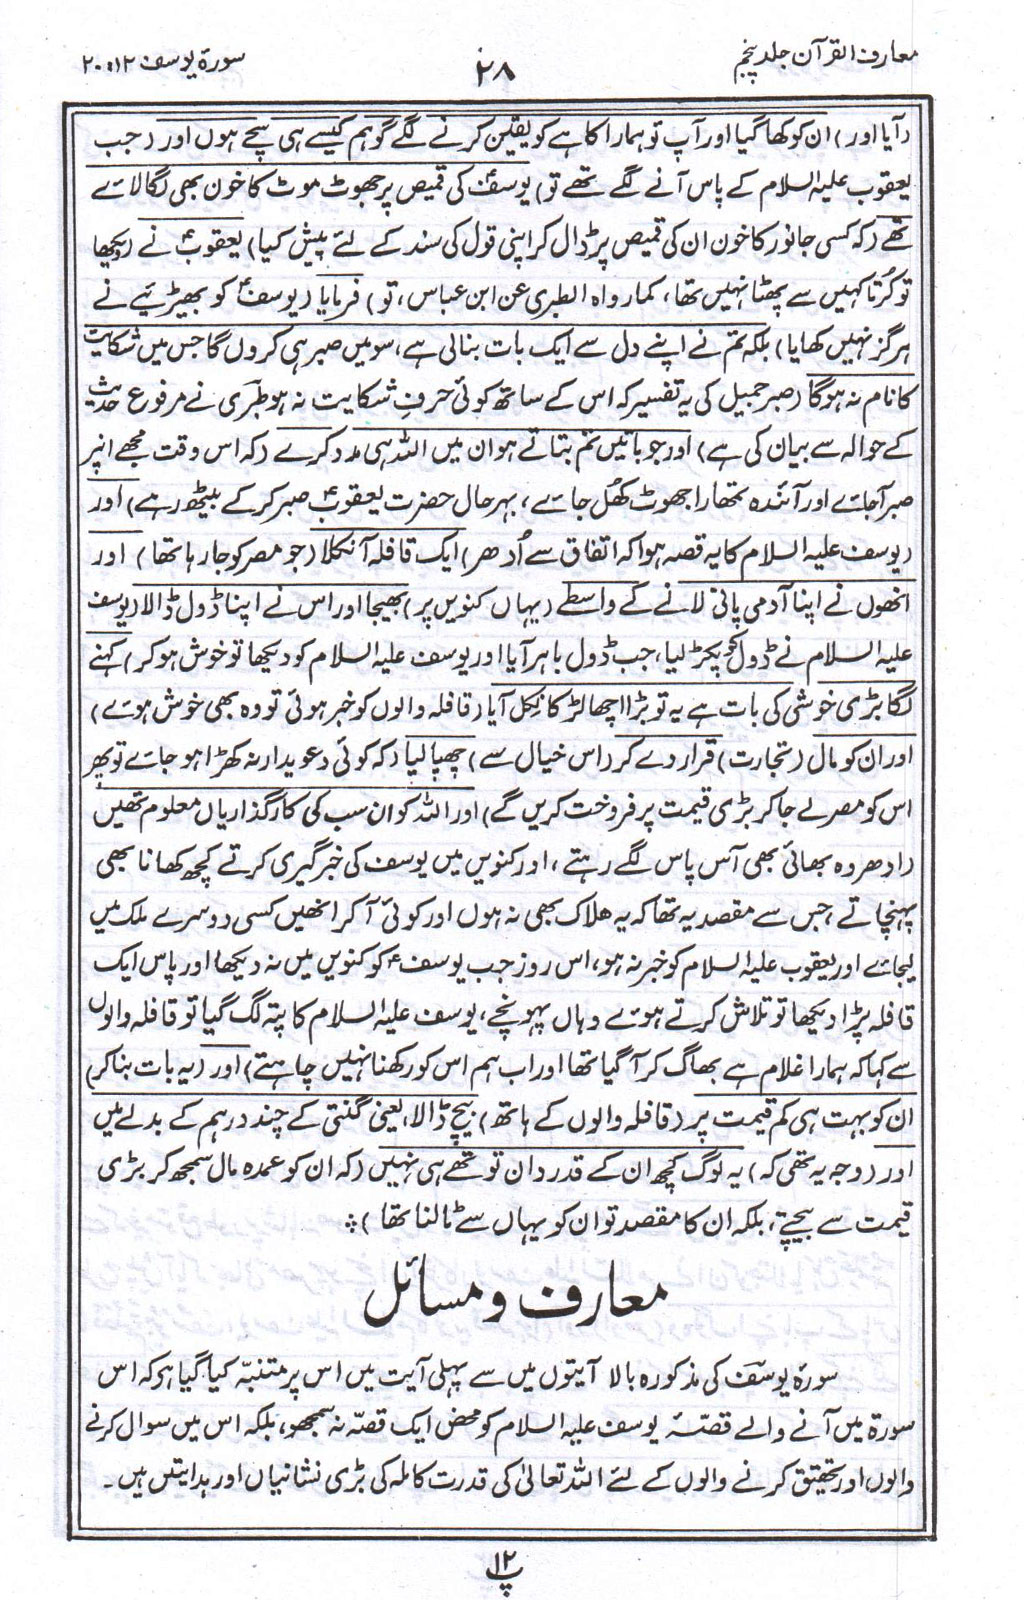 معارف القرآن جلد پنجم
۲۸
سورۃ یوسف ۱۲: ۲۰
(آیا اور) ان کو کھا گیا اور آپ تو ہمارا کاہے کو یقین کرنے لگے گو ہم کیسے ہی سچے ہوں اور (جب
یعقوب علیہ السلام کے پاس آنے لگے تھے تو) یوسفؑ کی قمیص پر جھوٹ موٹ کا خون بھی لگا لائے
تھے (کہ کسی جانور کا خون ان کی قمیص پر ڈال کر اپنی قول کی سند کے لئے پیش کیا) یعقوبؑ نے (دیکھا
تو کُرتا کہیں سے پھٹا نہیں تھا، کما رواہ الطبری عن ابن عباس، تو) فرمایا (یوسفؑ کو بھیڑیئے نے
ہرگز نہیں کھایا) بلکہ تم نے اپنے دل سے ایک بات بنالی ہے، سو میں صبر ہی کروں گا جس میں شکایت
کا نام نہ ہوگا (صبر جمیل کی یہ تفسیر کہ اس کے ساتھ کوئی حرفِ شکایت نہ ہو طبَری نے مرفوع حدیث
کے حوالہ سے بیان کی ہے) اور جو باتیں تم بتاتے ہو ان میں اللہ ہی مدد کرے (کہ اس وقت مجھے انپر
صبر آجائے اور آئندہ تمھارا جھوٹ کھُل جائے، بہرحال حضرت یعقوبؑ صبر کرکے بیٹھ رہے) اور
(یوسف علیہ السلام کا یہ قصہ ہوا کہ اتفاق سے اُدھر) ایک قافلہ آنکلا (جو مصر کو جا رہا تھا) اور
انھوں نے اپنا آدمی پانی لانے کے واسطے (یہاں کنویں پر) بھیجا اور اس نے اپنا ڈول ڈالا (یوسف
علیہ السلام نے ڈول کو پکڑ لیا، جب ڈول باہر آیا اور یوسف علیہ السلام کو دیکھا تو خوش ہوکر) کہنے
لگا بڑی خوشی کی بات ہے یہ تو بڑا اچھا لڑکا نِکل آیا (قافلہ والوں کو خبر ہوئی تو وہ بھی خوش ہوئے)
اور ان کو مال (تجارت) قرار دے کر (اس خیال سے) چھپا لیا (کہ کوئی دعویدار نہ کھڑا ہو جائے تو پھر
اس کو مصر لے جا کر بڑی قیمت پر فروخت کریں گے) اور اللہ کو ان سب کی کارگذاریاں معلوم تھیں
(ادھر وہ بھائی بھی آس پاس لگے رہتے، اور کنویں میں یوسف کی خبر گیری کرتے کچھ کھانا بھی
پہنچاتے جس سے مقصد یہ تھا کہ یہ ھلاک بھی نہ ہوں اور کوئی آ کر انھیں کسی دوسرے ملک میں
لیجائے اور یعقوب علیہ السلام کو خبر نہ ہو، اس روز جب یوسفؑ کو کنویں میں نہ دیکھا اور پاس ایک
قافلہ پڑا دیکھا تو تلاش کرتے ہوئے وہاں پہونچے، یوسف علیہ السلام کا پتہ لگ گیا تو قافلہ والوں
سے کہا کہ ہمارا غلام ہے بھاگ کر آگیا تھا اور اب ہم اس کو رکھنا نہیں چاہتے) اور (یہ بات بناکر)
ان کو بہت ہی کم قیمت پر (قافلہ والوں کے ہاتھ) بیچ ڈالا، یعنی گنتی کے چند درہم کے بدلے میں
اور (وجہ یہ تھی کہ) یہ لوگ کچھ ان کے قدردان تو تھے ہی نہیں (کہ ان کو عمدہ مال سمجھ کر بڑی
قیمت سے بیچتے، بلکہ ان کا مقصد تو ان کو یہاں سے ٹالنا تھا)
معارف و مسائل
سورۂ یوسفؑ کی مذکورہ بالا آیتوں میں سے پہلی آیت میں اس پر متنبّہ کیا گیا ہے کہ اس
سورۃ میں آنے والے قصّۂ یوسف علیہ السلام کو محض ایک قصّہ نہ سمجھو، بلکہ اس میں سوال کرنے
والوں اور تحقیق کرنے والوں کے لئے اللہ تعالیٰ کی قدرت کاملہ کی بڑی نشانیاں اور ہدایتیں ہیں۔
پ۱۲